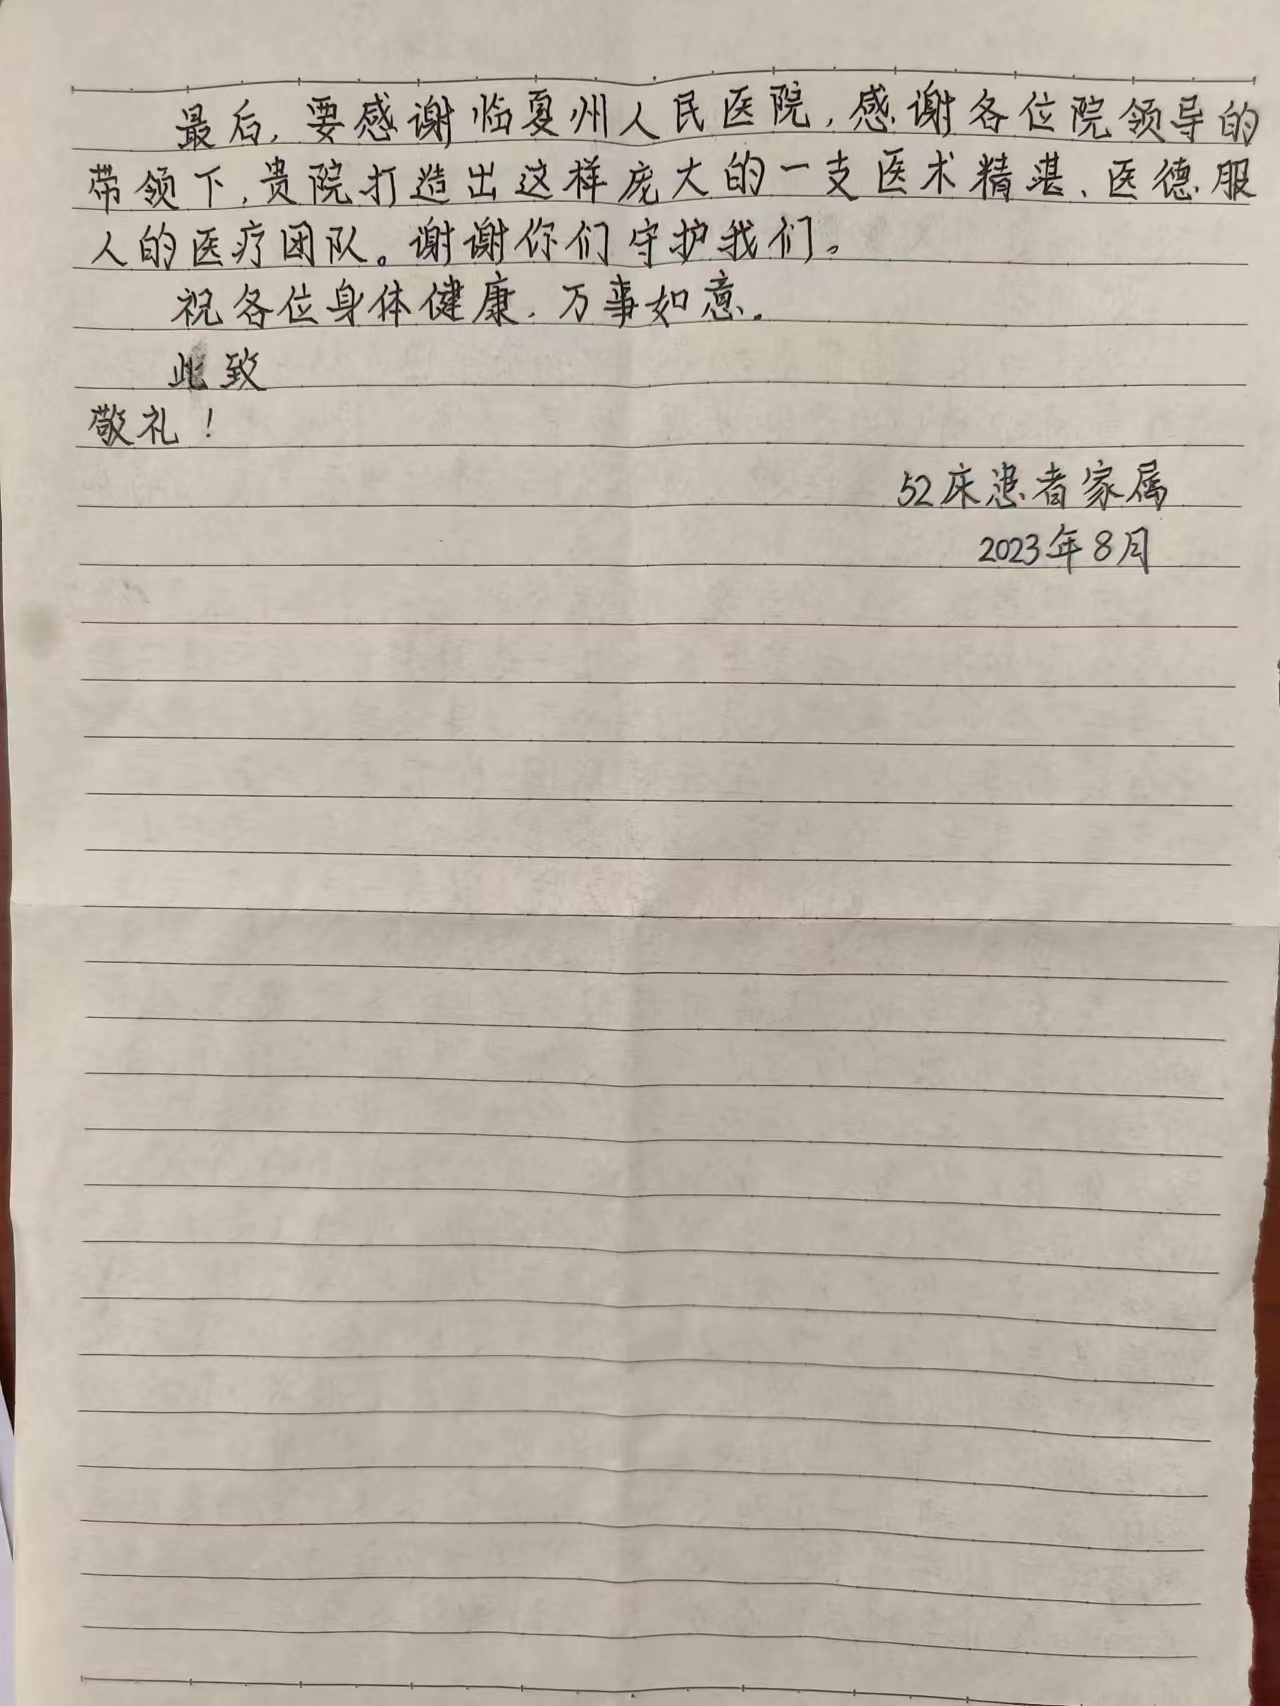 最后，要感谢临夏州人民医院，感谢各位院领导的
带领下，贵院打造出这样庞大的一支医术精湛、医德服
人的医疗团队。谢谢你们守护我们。
祝各位身体健康，万事如意。
此致
敬礼！
52床患者家属
2023年8月